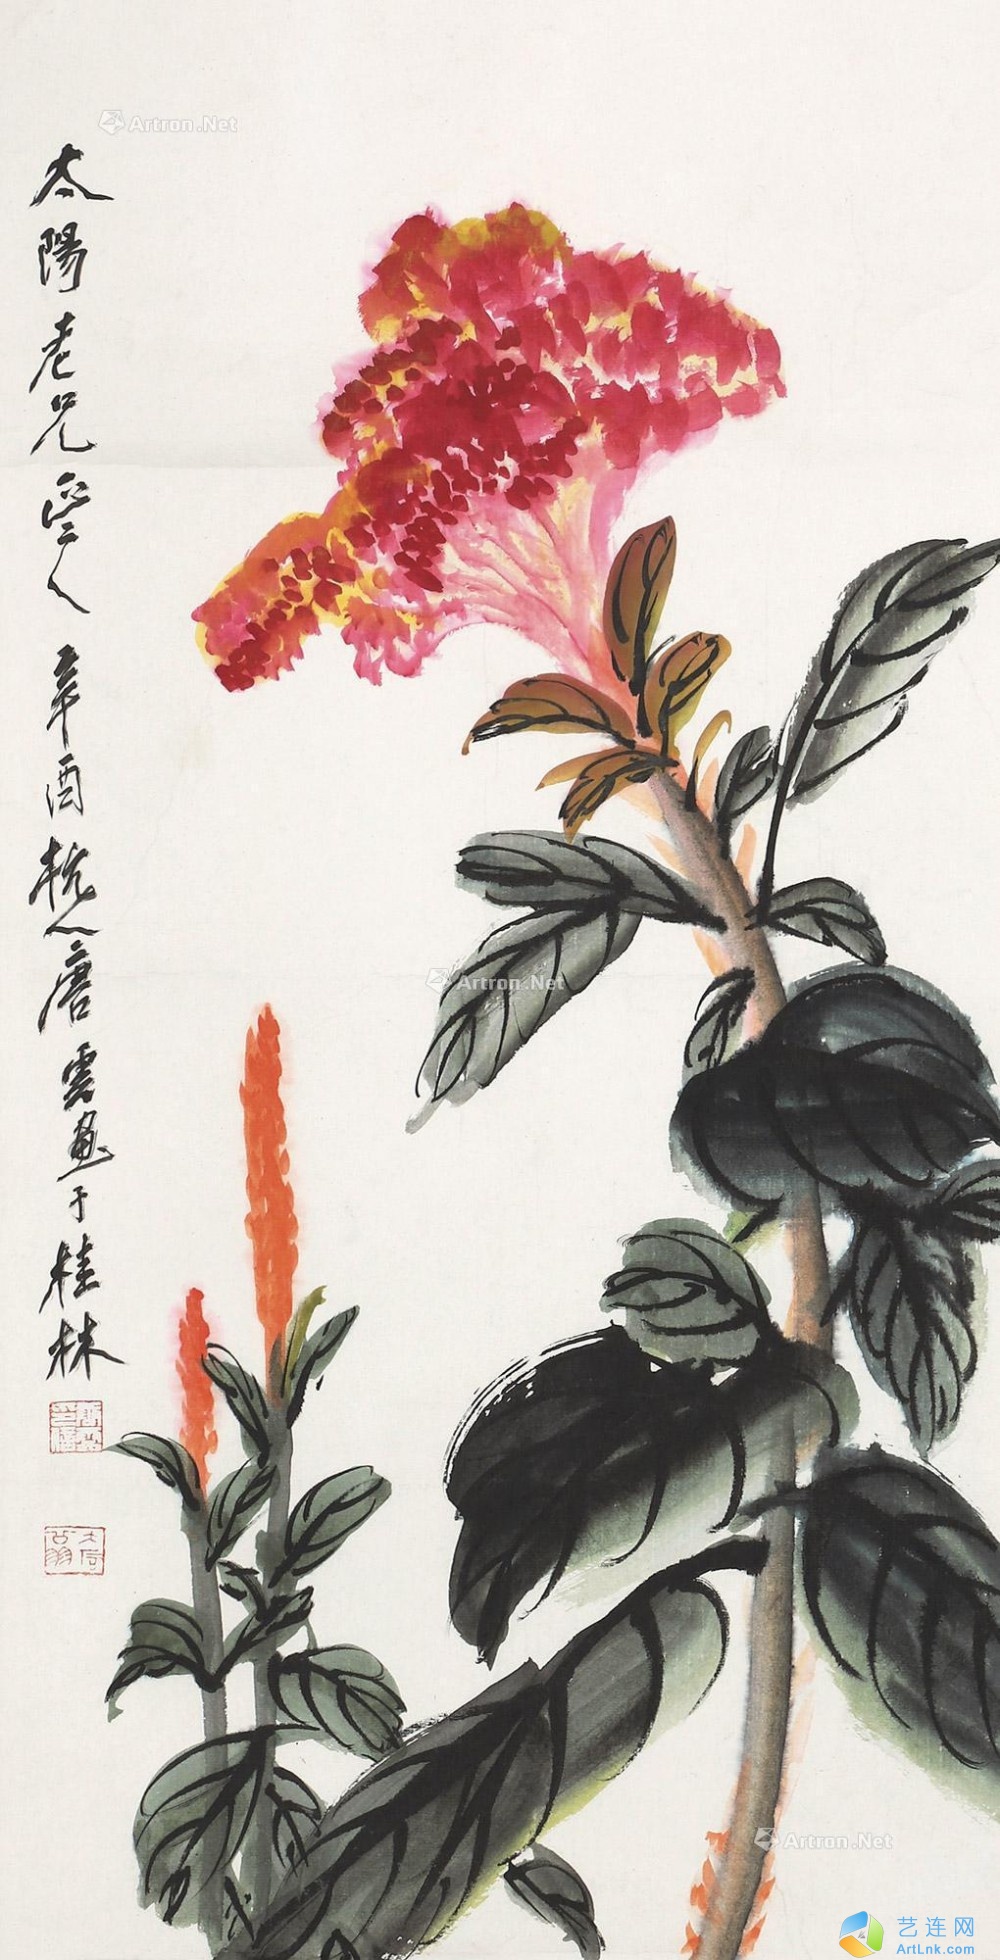 Artron.Net
太陽老兄正之 辛酉杭人唐雲畫于桂林
Artron.Net
大石翁
Artron.Net
艺连网
ArtLnk.com